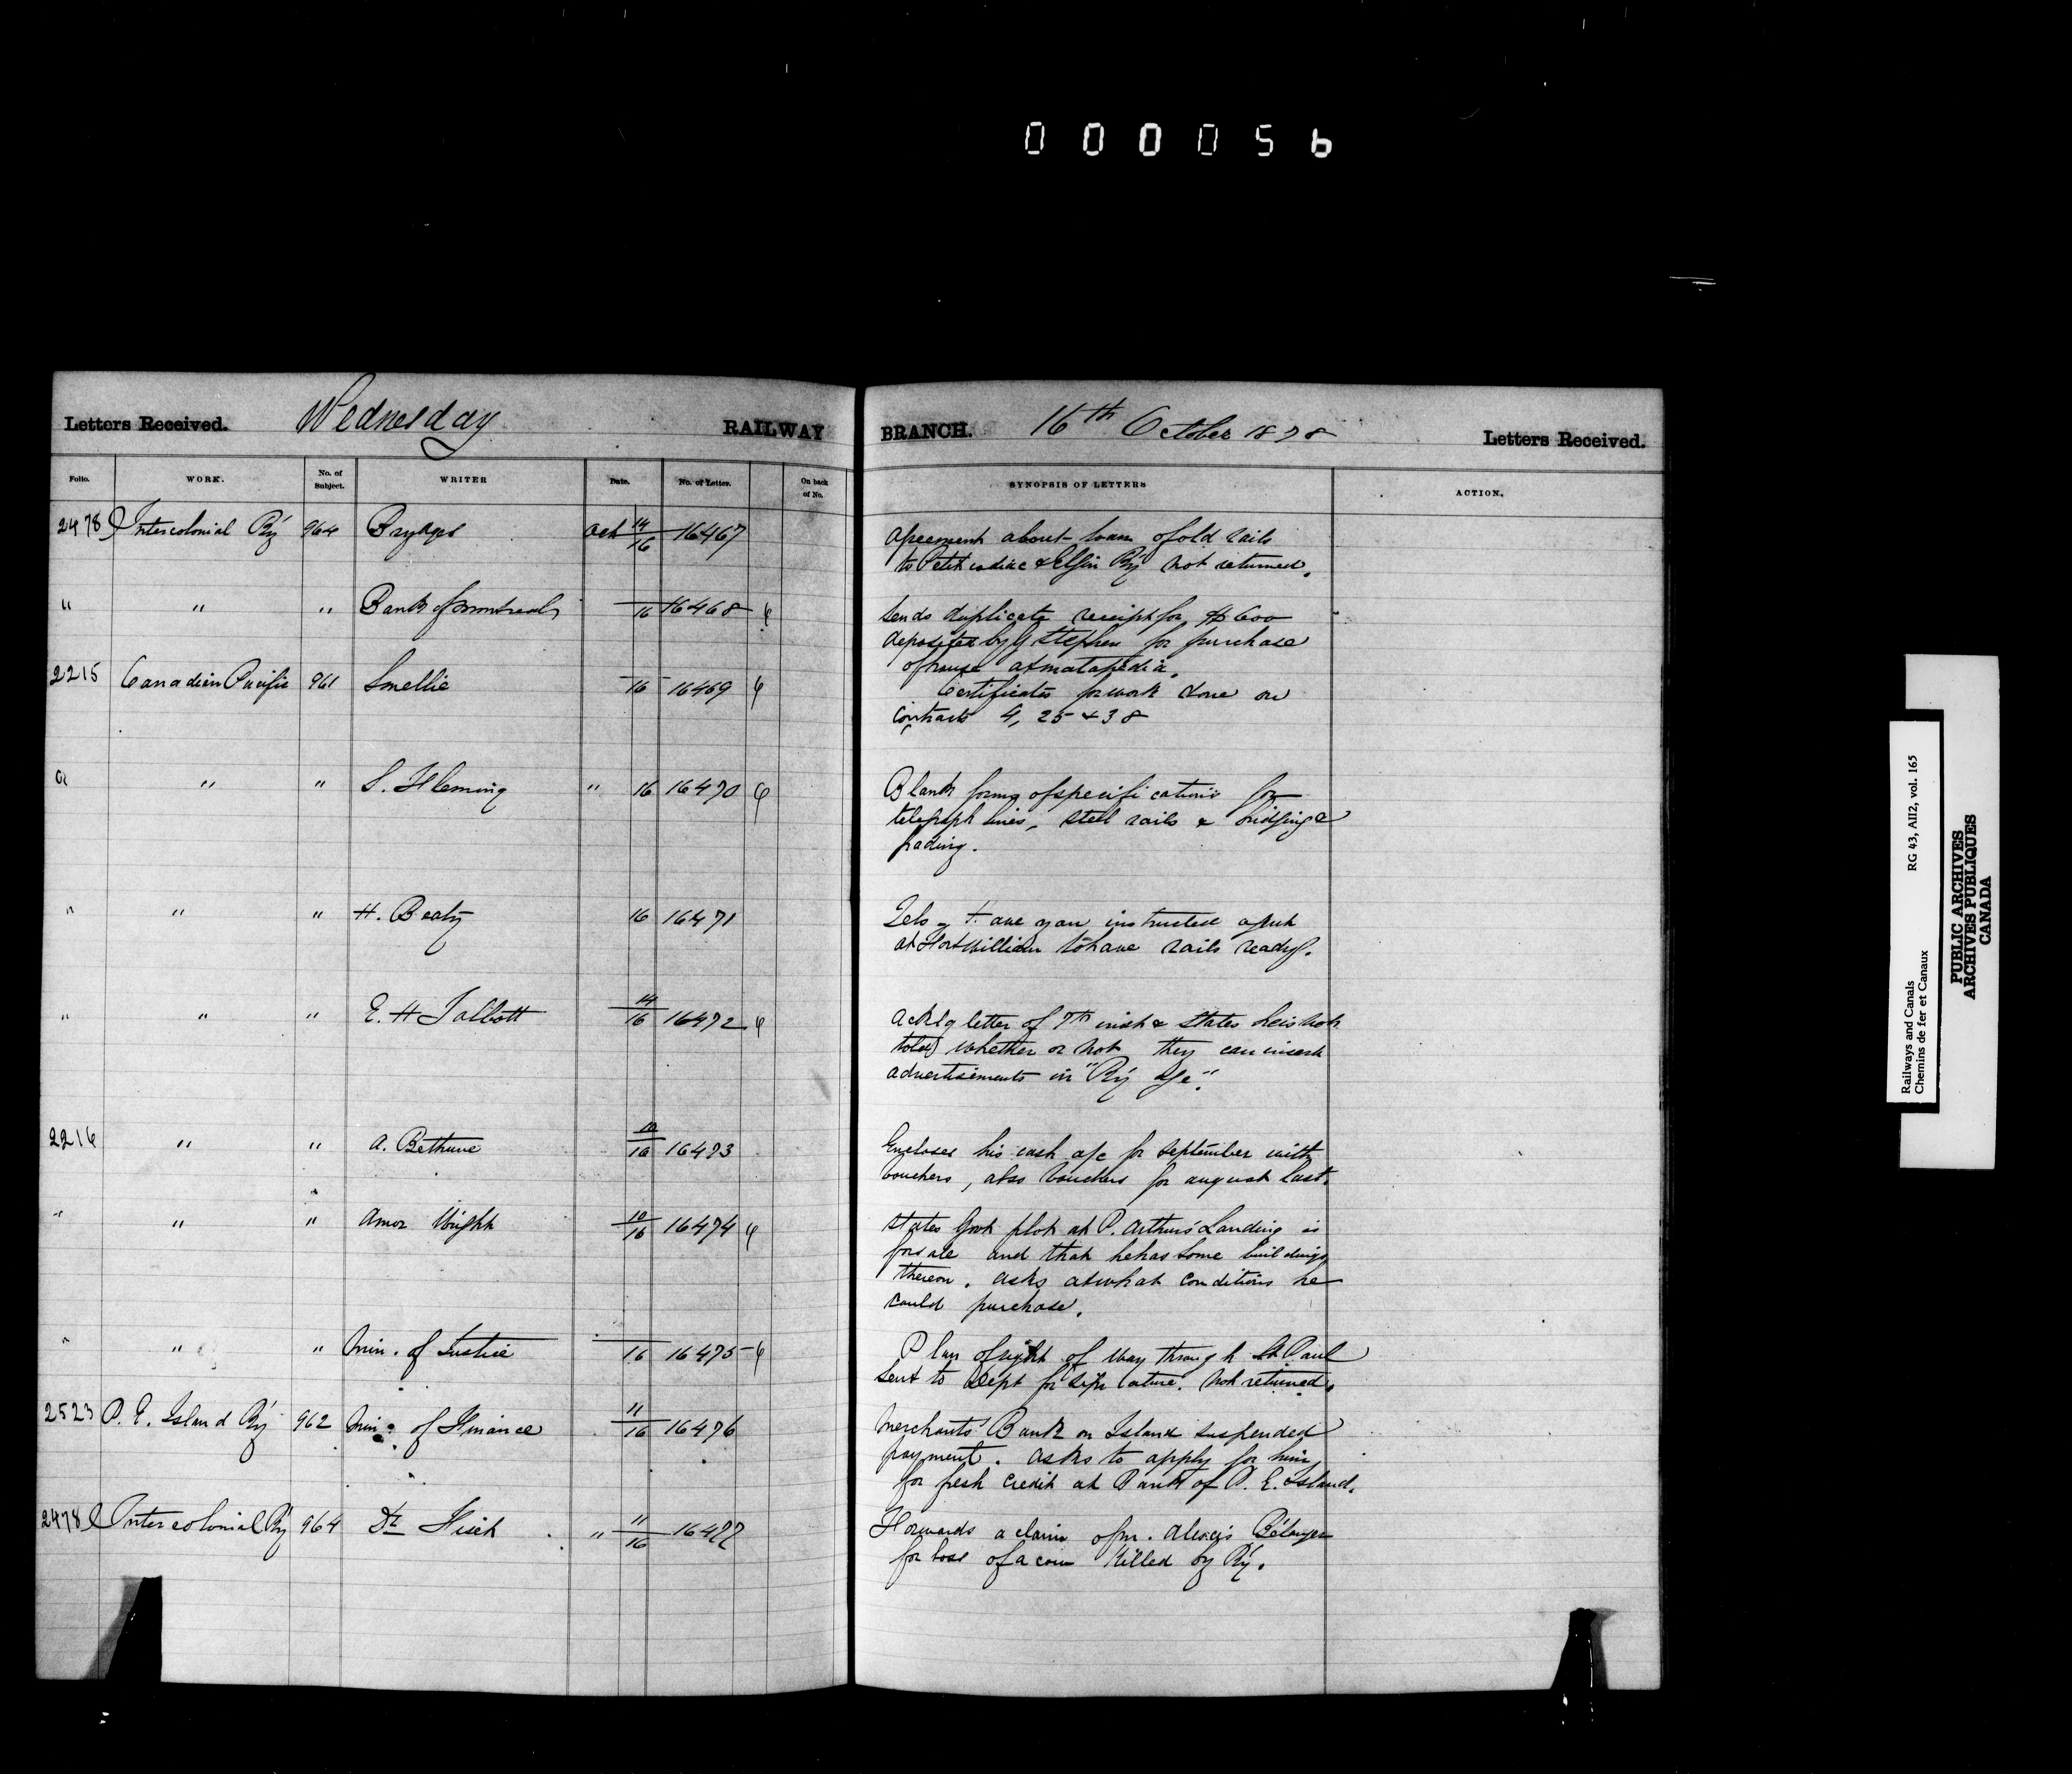 000056
Letters Received. Wednesday RAILWAY BRANCH. 16th October 1878 Letters Received.
Folio. WORK. No. of Subject. WRITER Date. No. of Letter. On back of No. SYNOPSIS OF LETTERS ACTION.
2478 Intercolonial Ry 964 Brydges Oct 14/16 16467 Agreement about loan of old rails
to Petitcodiac & Elgin Ry not returned.
" " " Bank of Montreal 16 16468 Sends duplicate receipt for $600
deposited by G Stephen for purchase
of house at Matapedia.
2215 Canadian Pacific 961 Smellie 16 16469 Certificates for work done on
Contracts 4, 25 & 38
" " " S. Fleming " 16 16470 Blank forms of specifications for
telegraph lines, steel rails & bridging &
grading.
" " " H. Beaty 16 16471 Tels - Have you instructed agent
at Fort William to have rails ready.
" " " E. H Talbott 14/16 16472 Ackg letter of 7th inst & states he is not
told whether or not they can insert
advertisements in "Ry Age".
2216 " " A. Bethune 10/16 16473 Encloses his cash a/c for September with
Vouchers, also Vouchers for August last.
" " " Amos Wright 10/16 16474 States Govt plot at P. Arthur's Landing is
for sale and that he has some buildings
thereon. Asks at what conditions he
could purchase.
" " " Min. of Justice 16 16475 Plan of right of way through St Paul
sent to Dept for signature. Not returned.
2523 P. E. Island Ry 962 Min. of Finance 11/16 16476 Merchants' Bank on Island suspended
payment. Asks to apply for him
for fresh credit at Bank of P. E. Island.
2478 Intercolonial Ry 964 Dr Fisek " 11/16 16477 Forwards a claim of Mr. Alexis Bélanger
for loss of a cow killed by Ry.
Railways and Canals RG 43, AII2, vol. 165
Chemins de fer et Canaux
PUBLIC ARCHIVES
ARCHIVES PUBLIQUES
CANADA